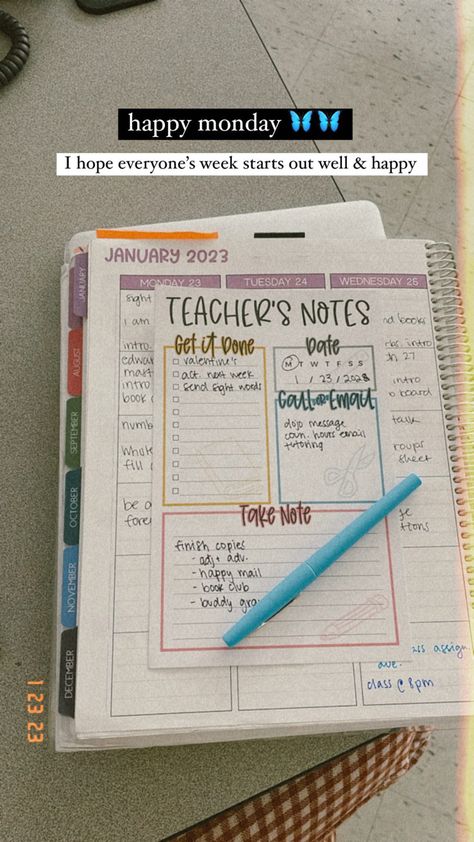 happy monday 🦋🦋
I hope everyone's week starts out well & happy
JANUARY 2023
MONDAY 23 TUESDAY 24 WEDNESDAY 25
JANUARY
AUGUST
SEPTEMBER
OCTOBER
NOVEMBER
DECEMBER
sight
I am
intro
intro
book
numb
fill
be a
TEACHER'S NOTES
Get it Done
valentine's
act. next week
send sight words
Date
M T W T F S S
1 / 23 / 2023
Call or Email
dojo message
coun. hours email
tutoring
Take Note
finish copies
- adj + adv.
- happy mail
- book club
- buddy
nd books
intro
27
intro
board
talk
roups
sheet
ttons
ass assign
class @ 8pm
1 23 23